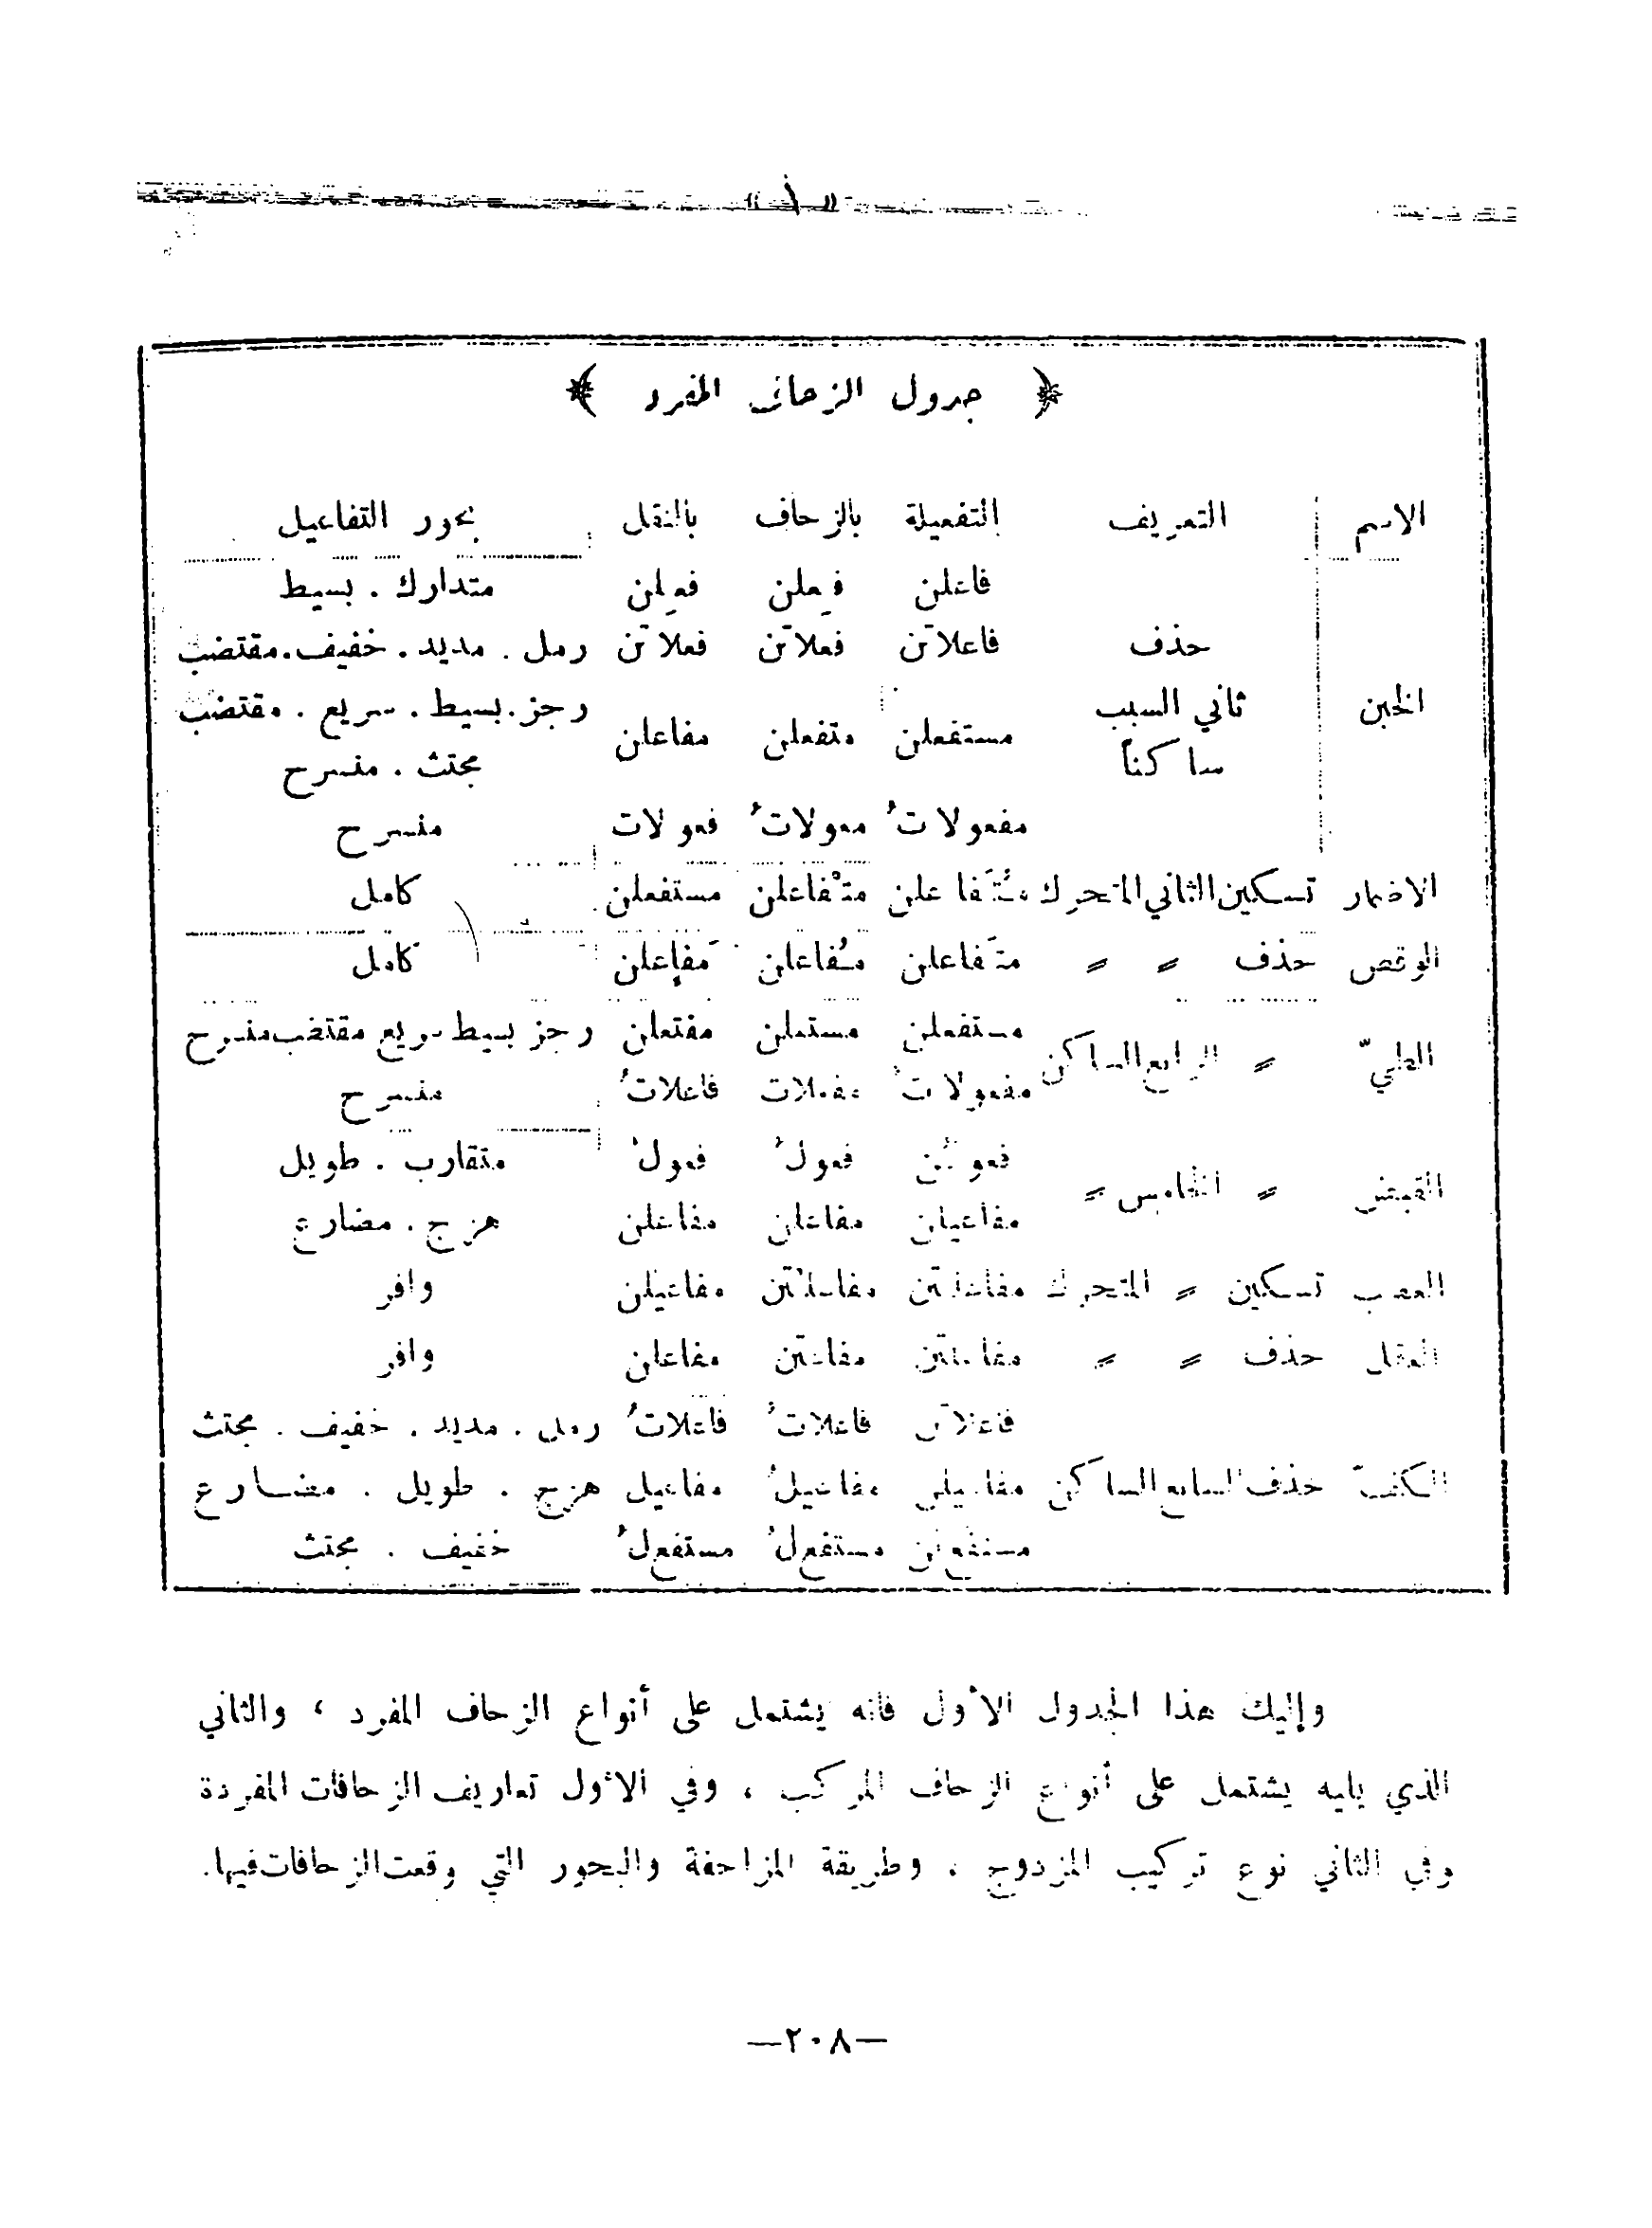 ﴿ جدول الزحاف المفرد ﴾
الاسم التعريف التفعيلة بالزحاف بالنقل بحور التفاعيل
فاعلن فعلن فعلن متدارك . بسيط
حذف فاعلاتن فعلاتن فعلاتن رمل . مديد . خفيف . مقتضب
الخبن ثاني السبب مستفعلن متفعلن مفاعلن رجز . بسيط . سريع . مقتضب
ساكناً مجتث . منسرح
مفعولاتُ معولاتُ فعولات منسرح
الاضمار تسكين الثاني المتحرك مُتَفاعلن متْفاعلن مستفعلن كامل
الوقص حذف = = متَفاعلن مُفاعلن مَفاعلن كامل
الطيّ = الرابع الساكن مستفعلن مستعلن مفتعلن رجز بسيط سريع مقتضب منسرح
مفعولاتُ مفعلات فاعلاتُ منسرح
القبض = الخامس = فعولن فعولُ فعولُ متقارب . طويل
مفاعيلن مفاعلن مفاعلن هزج . مضارع
العصب تسكين = المتحرك مفاعلَتن مفاعلْتن مفاعيلن وافر
العقل حذف = = مفاعلتن مفاعتن مفاعلن وافر
فاعلاتن فاعلاتُ فاعلاتُ رمل . مديد . خفيف . مجتث
الكفّ حذف السابع الساكن مفاعيلن مفاعيلُ مفاعيل هزج . طويل . مضارع
مستفعلن مستفعلُ مستفعلُ خفيف . مجتث
وإليك هذا الجدول الأول فانه يشتمل على أنواع الزحاف المفرد ، والثاني
الذي يليه يشتمل على أنواع الزحاف المركب ، وفي الأول تعاريف الزحافات المفردة
وفي الثاني نوع تركيب المزدوج ، وطريقة المزاحفة والبحور التي وقعت الزحافات فيها.
—٢٠٨—